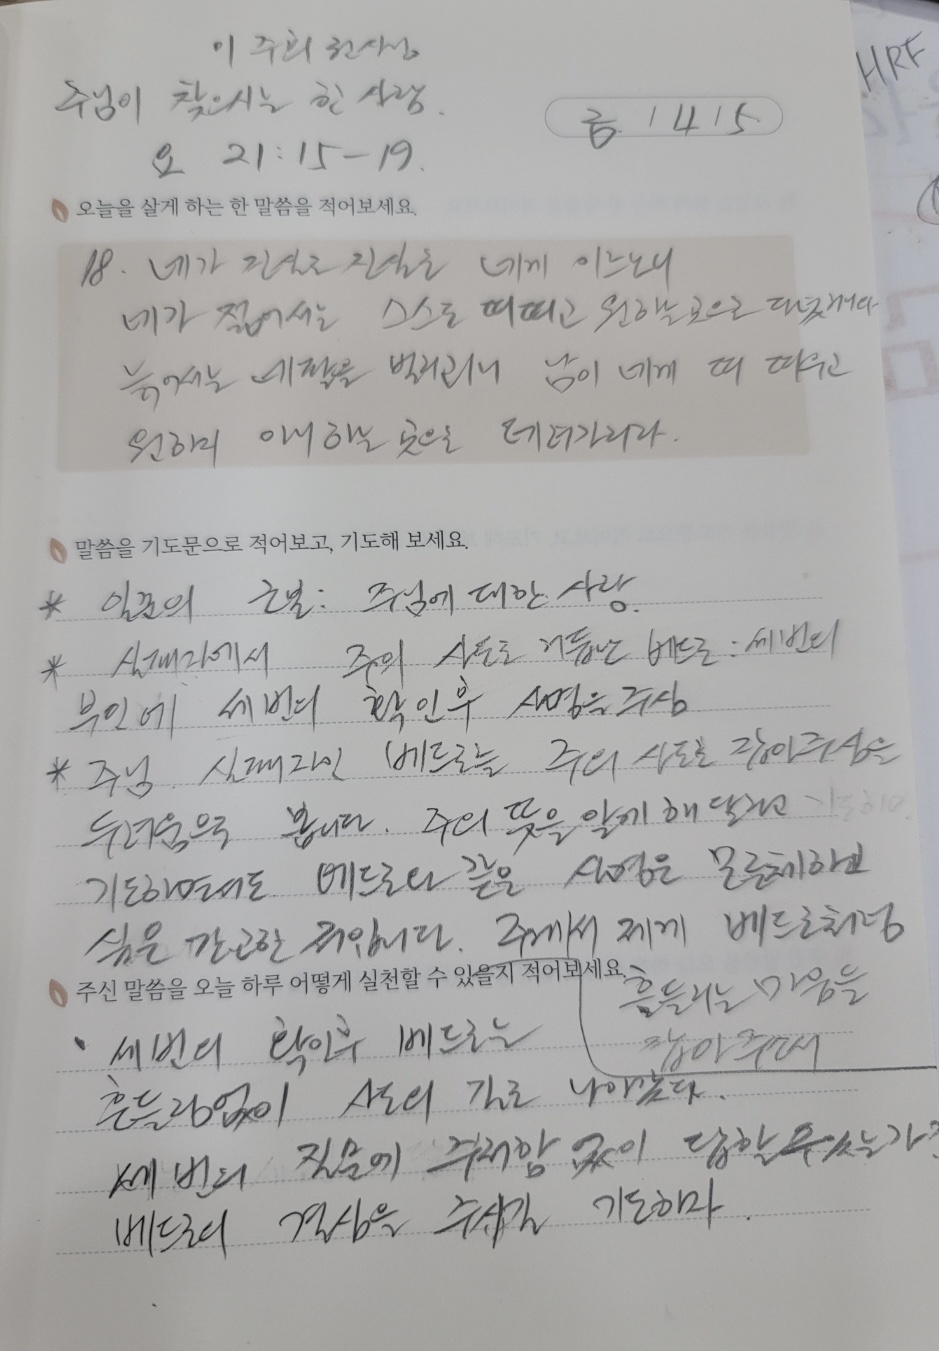 이주희 권사님
주님이 찾으시는 한 사람.
금 1415
HRF
요 21:15-19.
오늘을 살게 하는 한 말씀을 적어보세요.
18. 내가 진실로 진실로 네게 이르노니
네가 젊어서는 스스로 띠띠고 원하는 곳으로 다녔거니와
늙어서는 네 팔을 벌리리니 남이 네게 띠 띠우고
원하지 아니하는 곳으로 데려가리라.
말씀을 기도문으로 적어보고, 기도해 보세요.
* 일꾼의 근본: 주님에 대한 사랑.
* 실패자에서 주의 사도로 거듭난 베드로: 세번의
부인에 세번의 확인후 사명을 주심
* 주님 실패자인 베드로를 주의 사도로 잡아주심을
두려움으로 봅니다. 주의 뜻을 알게 해 달라고
기도하면서도 베드로와 같은 사명은 모른체하고
싶은 간교한 죄인입니다. 주께서 제게 베드로처럼
주신 말씀을 오늘 하루 어떻게 실천할 수 있을지 적어보세요.
흔들리는 마음을
잡아주셔서
· 세번의 확인후 베드로는
흔들림없이 사도의 길로 나아갔다.
세번의 질문에 주저함 없이 답할 수 있는가?
베드로의 결심을 주시길 기도하자.